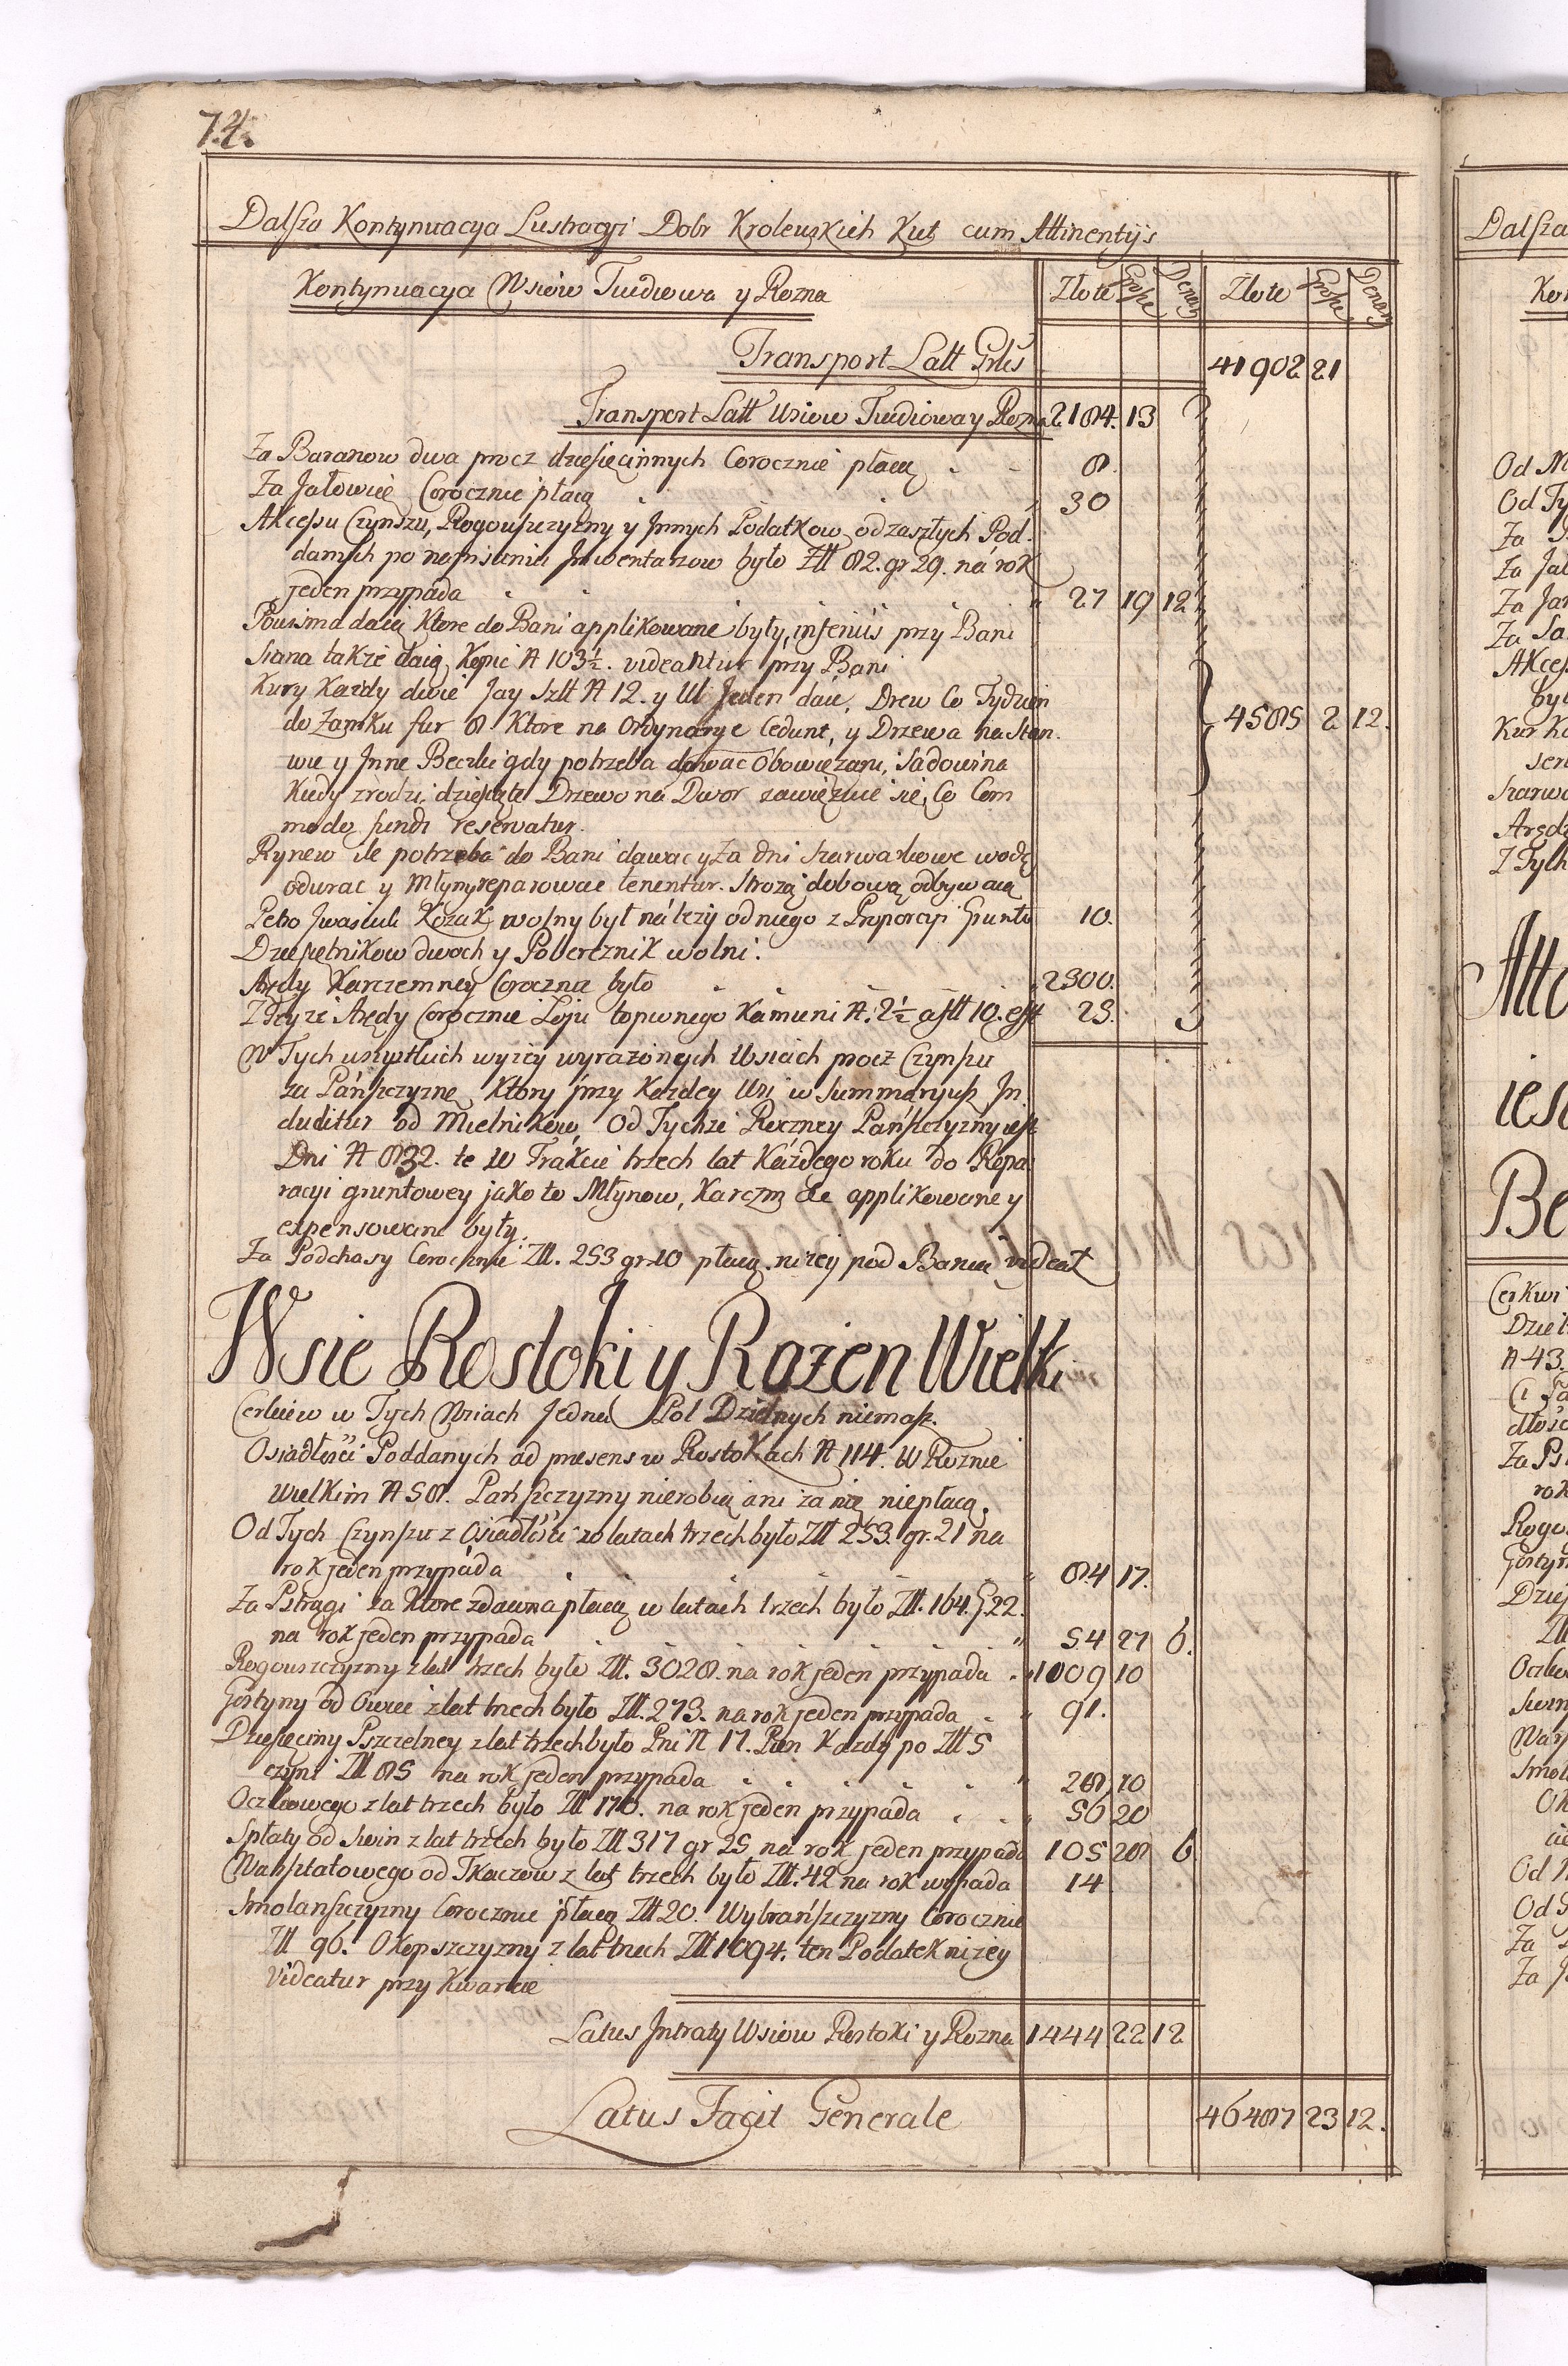 74.
Dalsza Kontynuacya Lustracyi Dobr Krolewskich Kut cum Attinentijs
Kontynuacya Wsiow Tudiowa y Rozna Złote Grosze Denary Złote Grosze Denary
Transport Latt Grlis 41902 21
Transport Latt Wsiow Tudiowa y Rozna 2184. 13
Za Baranow dwa procz dziesięcinnych Corocznie płacą 8.
Za Jałowicę Corocznie płacą 30
Akcessu Czynszu, Rogowszczyzny y Jnnych Podatkow od zaszłych Pod-
danych po napisaniu Jnwentarzow było Złł 82. gr 29. na rok
jeden przypada 27 19 12
Powisma daią Ktore do Bani applikowane były, inferius przy Bani
Siana także daią Kopic N 103½. videantur przy Bani
Kury Kazdy dwie Jay Szłł N 12. y Ul Jeden daie, Drew Co Tydzien
do Zamku fur 8. Ktore na Ordynarye Cedunt, y Drzewa na Stan-
wie y Jnne Beczki gdy potrzeba dawac obowięzani, Sadowina
Kiedy zrodzi, dziesiąte Drzewo na Dwor zawięzuie się, Co Com
modo fundi reservatur. 4585 2 12.
Rynew ile potrzeba do Bani dawac y za dni szarwarkowe wodę
odwrac y Młyny reparowac tenentur. Strozą dobową odbywaią
Petro Jwasiuk Kozak wolny był należy od niego z Proporcyi Gruntu 10.
Dziesiętnikow dwoch y Pobereznik wolni.
Arędy Karczemney Coroczna było 2300.
Z Teyże Arędy Corocznie Łoju topionego Kamieni N. 2½ a fłł 10. est 25.
W Tych wszystkich wyżey wyrażonych Wsiach procz Czynszu
za Pańszczyznę, Ktory przy Kazdey Wsi w Summaryusz Jn-
cluditur od Mielnikow, Od Tychże Ręczney Pańszczyzny jest
Dni N 832. te w Trakcie trzech lat Każdego roku do Repa
racyi gruntowey jako to Młynow, Karczm &c applikowane y
expensowane były.
Za Podchasy Corocznie Złł. 253 gr 10 płacą. nizey pod Banią videat
Wsie Rostoki y Rożen Wielki
Cerkiew w Tych Wsiach Jedna Pol Dzielnych niemasz.
Osiadłości Poddanych ad presens w Rostokach N 114. W Roznie
Wielkim N 58. Pańszczyzny nierobią ani za nię niepłacą.
Od Tych Czynszu z Osiadłości w latach trzech było Złł 253. gr. 21 na
rok jeden przypada 84 17.
Za Pstrągi za Ktore zdawna płacą w latach trzech było Złł. 164. g 22.
na rok jeden przypada 54 27 6.
Rogowszczyzny z lat trzech było Złł. 3028. na rok jeden przypada 1009 10
Gostyny od Owiec z lat trzech było Złł. 273. na rok jeden przypada 91.
Dziesięciny Pszczelney z lat trzech było Pni N 17. Pien Kazdy po Złł 5
czyni Złł 85 na rok jeden przypada 28 10
Oczkowego z lat trzech było Złł 170. na rok jeden przypada 56 20
Spłaty od Swin z lat trzech było Złł 317 gr 25 na rok jeden przypada 105 28 6
Warsztatowego od Tkaczow z lat trzech było Złł. 42 na rok wypada 14
Smolanszczyzny Corocznie płacą Złł 20. Wybrańszczyzny Corocznie
Złł 96. Okopszczyzny z lat trzech Złł 1094. ten Podatek nizey
Videatur przy Kwarcie
Latus Jntraty Wsiow Rostoki y Rozna 1444 22 12
Latus Facit Generale 46487 23 12.